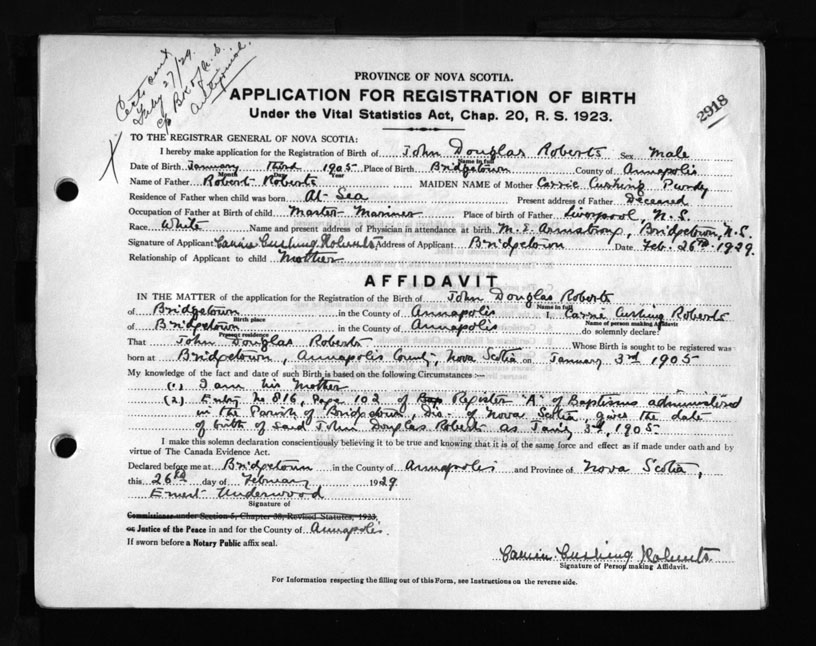 Certs sent
Feby 27/29
c/o
2918
PROVINCE OF NOVA SCOTIA.
APPLICATION FOR REGISTRATION OF BIRTH
Under the Vital Statistics Act, Chap. 20, R. S. 1923.
TO THE REGISTRAR GENERAL OF NOVA SCOTIA:
I hereby make application for the Registration of Birth of John Douglas Roberts Sex Male
Name in full
Date of Birth January third 1905 Place of Birth Bridgetown County of Annapolis
Month Day Year
Name of Father Robert Roberts MAIDEN NAME of Mother Carrie Cushing Purdy
Residence of Father when child was born At Sea Present address of Father Deceased
Occupation of Father at Birth of child Master Mariner Place of birth of Father Liverpool, N.S.
Race White Name and present address of Physician in attendance at birth. M. E. Armstrong, Bridgetown, N.S.
Signature of Applicant Carrie Cushing Roberts Address of Applicant Bridgetown Date Feb. 26th, 1929.
Relationship of Applicant to child Mother
AFFIDAVIT
IN THE MATTER of the application for the Registration of the Birth of John Douglas Roberts
Name in full
of Bridgetown in the County of Annapolis I, Carrie Cushing Roberts
Birth place Name of person making Affidavit
of Bridgetown in the County of Annapolis do solemnly declare!
Present residence
That John Douglas Roberts Whose Birth is sought to be registered was
born at Bridgetown, Annapolis County, Nova Scotia on January 3rd 1905
My knowledge of the fact and date of such Birth is based on the following Circumstances :—
(1.) I am his Mother
(2) Entry No 816, Page 102 of Bap Register "A" of Baptisms administered
in the Parish of Bridgetown, Dio. of Nova Scotia, gives the date
of birth of said John Douglas Roberts as Jan'y 3rd, 1905
I make this solemn declaration conscientiously believing it to be true and knowing that it is of the same force and effect as if made under oath and by
virtue of The Canada Evidence Act.
Declared before me at Bridgetown in the County of Annapolis and Province of Nova Scotia,
this 26th day of February 1929
Ernest Underwood
Signature of
Commissioner under Section 5, Chapter 38, Revised Statutes, 1923,
or Justice of the Peace in and for the County of Annapolis.
If sworn before a Notary Public affix seal.
Carrie Cushing Roberts
Signature of Person making Affidavit.
For Information respecting the filling out of this Form, see Instructions on the reverse side.